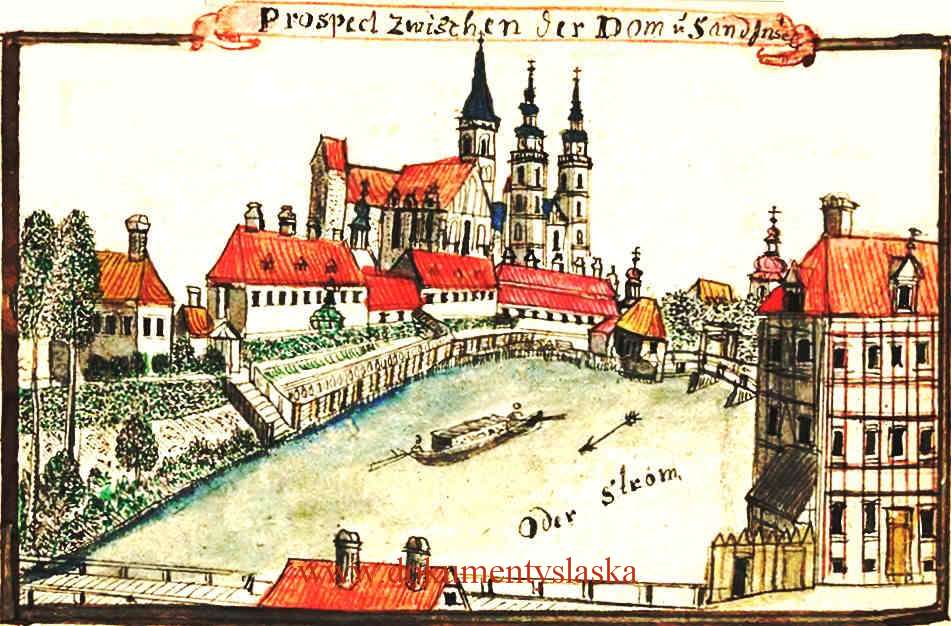 Prospect zwischen der Dom u Sand Insel
Oder Strom,
www.dokumentyslaska